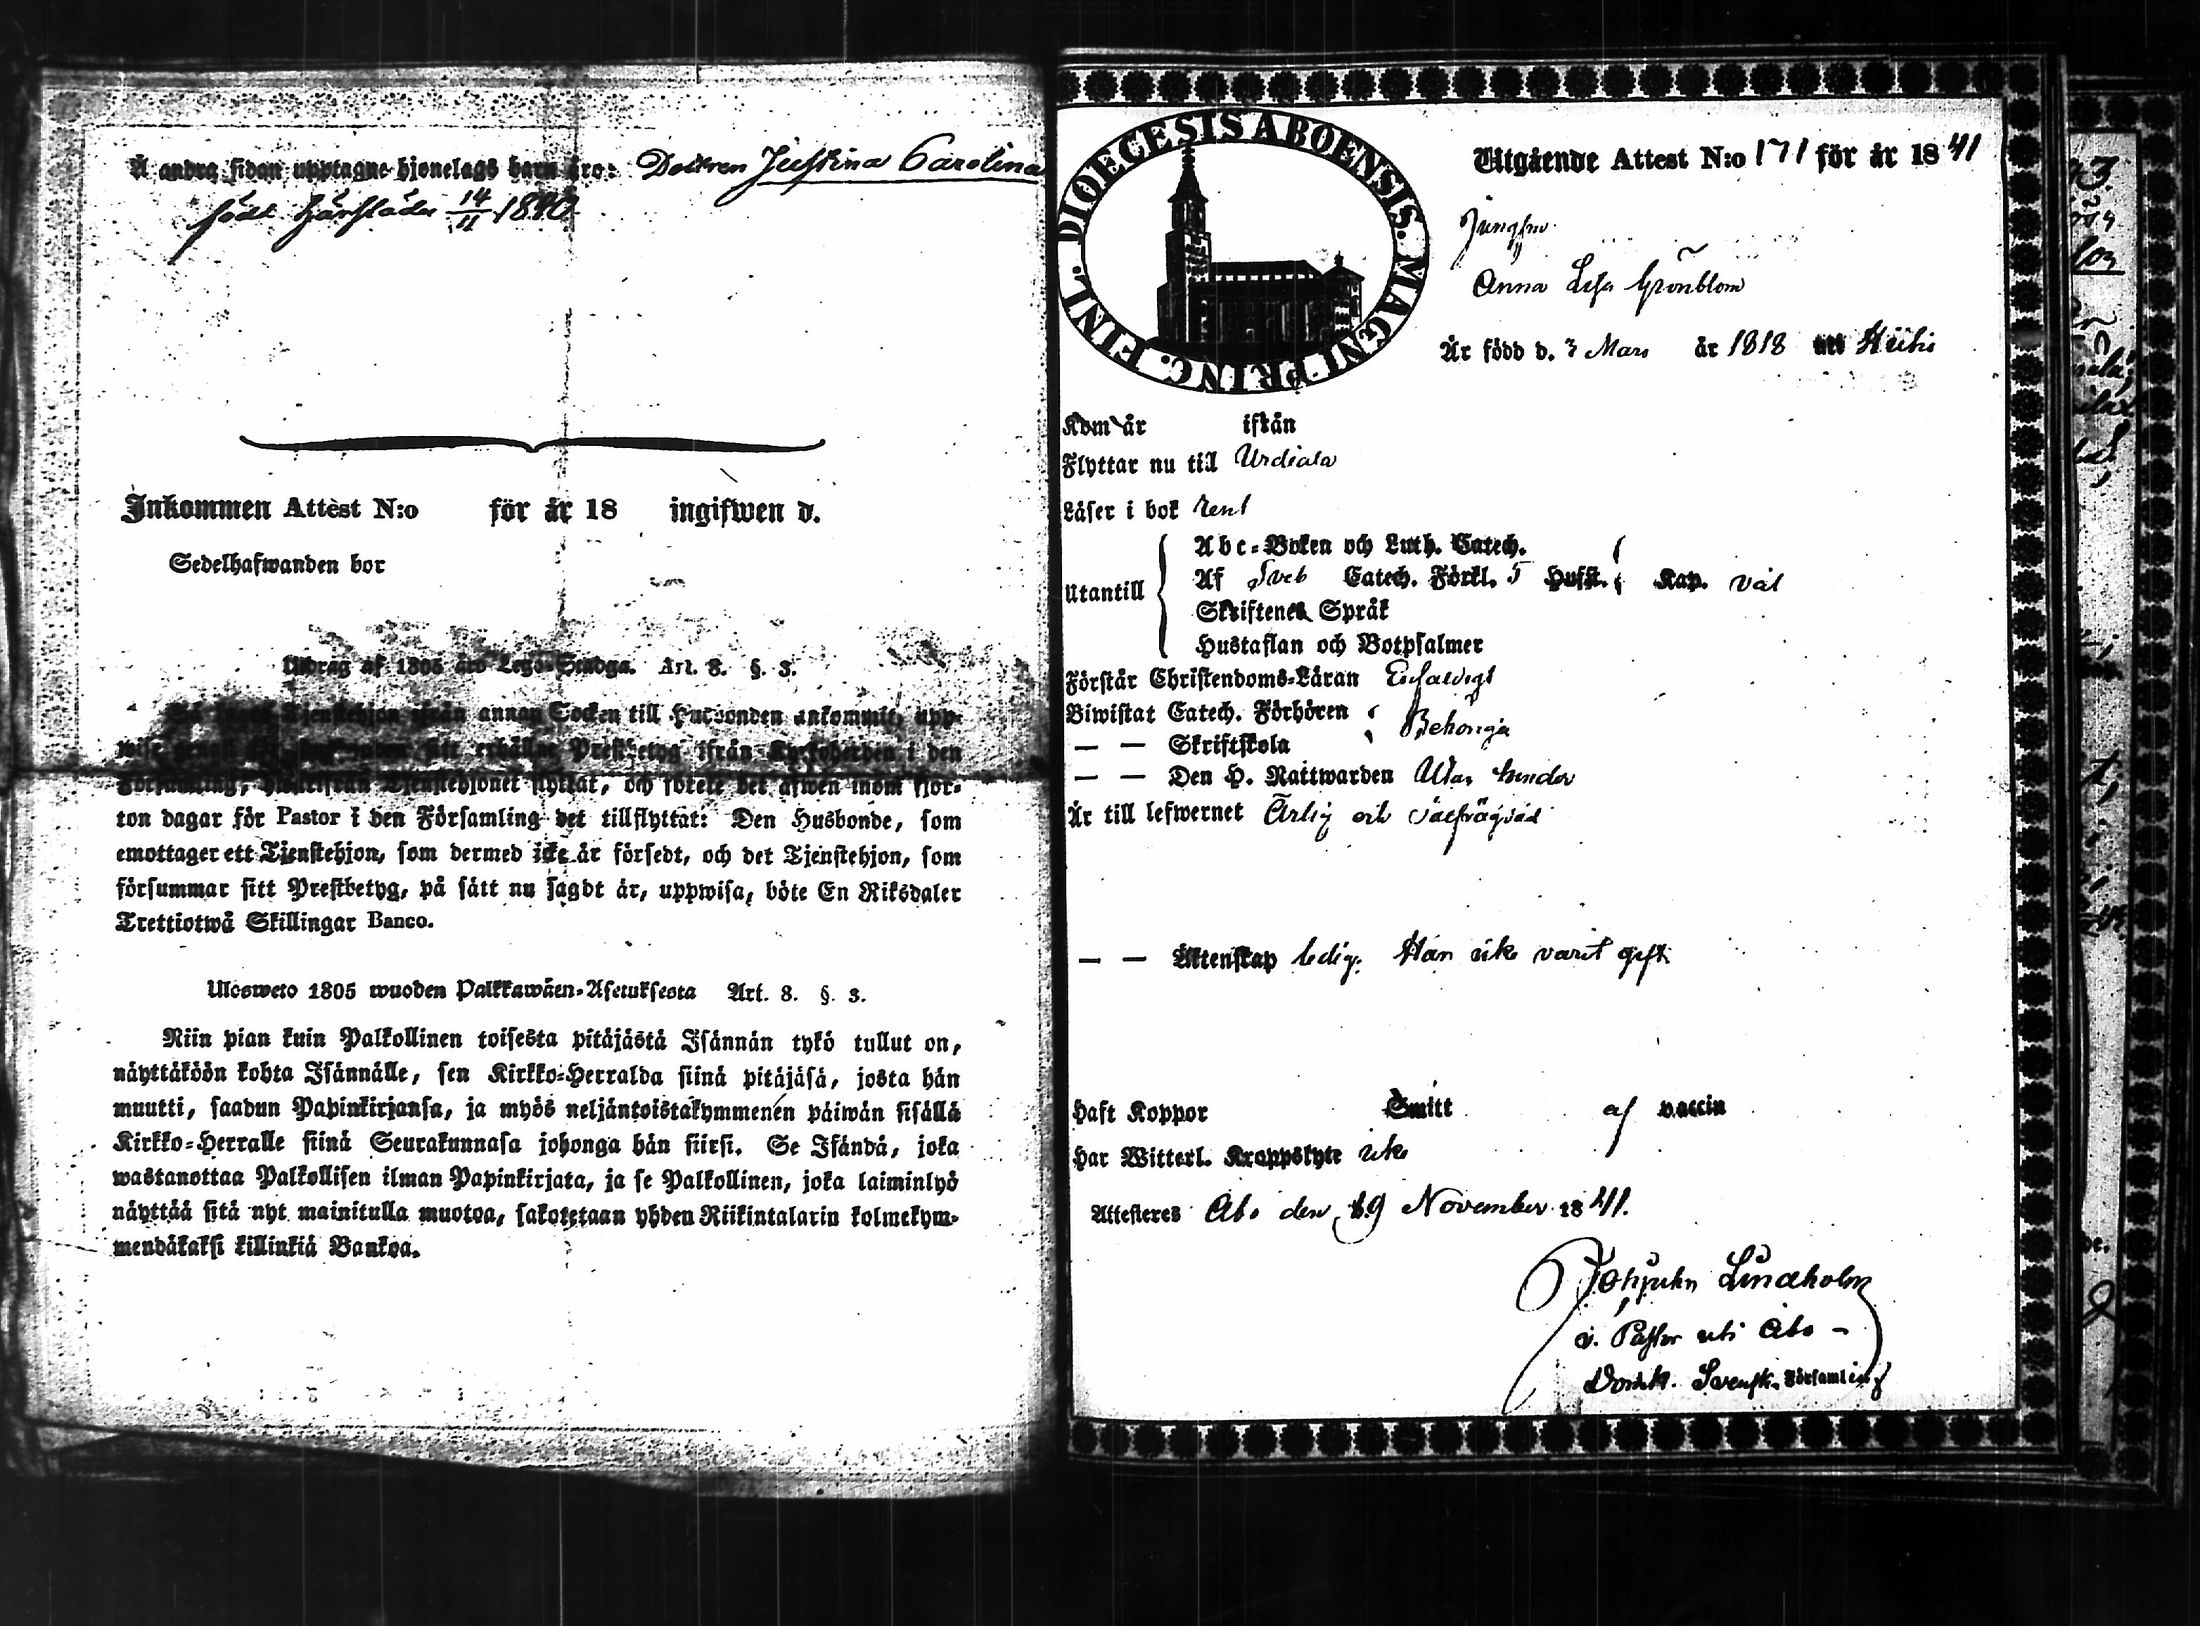 Å andra sidan upptagne hjonelags barn äro: Dottren Justina Carolina
född härstädes 14/11 1840
Inkommen Attest N:o för år 18 ingifwen d.
Sedelhafwanden bor
Utdrag af 1805 års Lego-Stadga. Art. 8. §. 3.
annan Socken till Husbonden ankommit, upp-
Prestbetyg ifrån Kyrkoherden i den
Församling, hwarifrån Tjenstehjonet flyttat, och förete det äfwen inom fjor-
ton dagar för Pastor i den Församling det tillflyttat: Den Husbonde, som
emottager ett Tjenstehjon, som dermed icke är försedt, och det Tjenstehjon, som
försummar sitt Prestbetyg, på sätt nu sagdt är, uppwisa, böte En Riksdaler
Trettiotwå Skillingar Banco.
Ulosweto 1805 wuoden Palkkawäen-Asetuksesta Art. 8. §. 3.
Niin pian kuin Palkollinen toisesta pitäjästä Isännän tykö tullut on,
näyttäköön kohta Isännälle, sen Kirkko-Herralda siinä pitäjäsä, josta hän
muutti, saadun Papinkirjansa, ja myös neljäntoistakymmenen päiwän sisällä
Kirkko-Herralle siinä Seurakunnasa johonga hän siirsi. Se Isändä, joka
wastanottaa Palkollisen ilman Papinkirjata, ja se Palkollinen, joka laiminlyö
näyttää sitä nyt mainitulla muotoa, sakotetaan yhden Riikintalarin kolmekym-
mendäkaksi killinkiä Bankoa.
DIOECESIS ABOENSIS. MAGNI PRINC. FINL.
Utgående Attest N:o 171 för år 1841
Jungfru
Anna Lisa Grönblom
Är född d. 3 Mars år 1818
Kom år ifrån
Flyttar nu till Urdiala
Läser i bok rent
Utantill
Abc-Boken och Luth. Catech.
Af Sveb Catech. Förkl. 5 Hufst. Kap. väl
Skriftenes Språk
Hustaflan och Botpsalmer
Förstår Christendoms-Läran Enfaldigt
Biwistat Catech. Förhören
— — Skriftskola Behöriga
— — Den H. Nattwarden Utan hinder
Är till lefwernet Ärlig och välfrägdad
— — Äktenskap ledig. Har icke varit gift
Haft Koppor Smitt af vaccin
Har Witterl. Kroppslyte icke
Attesteres Åbo den 19 November 1841.
Lindholm
v. Pastor uti Åbo
Domk. Svensk. Församling